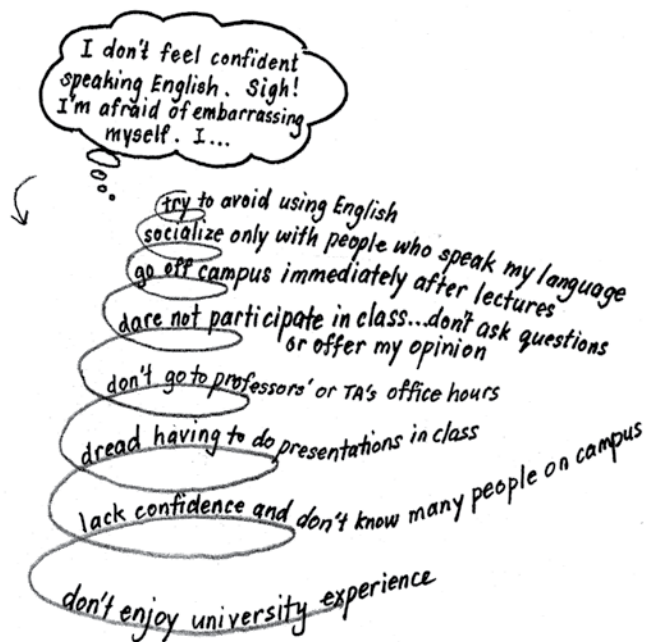 I don't feel confident
speaking English. Sigh!
I'm afraid of embarrassing
myself. I...
try to avoid using English
socialize only with people who speak my language
go off campus immediately after lectures
dare not participate in class...don't ask questions
or offer my opinion
don't go to professors' or TA's office hours
dread having to do presentations in class
lack confidence and don't know many people on campus
don't enjoy university experience